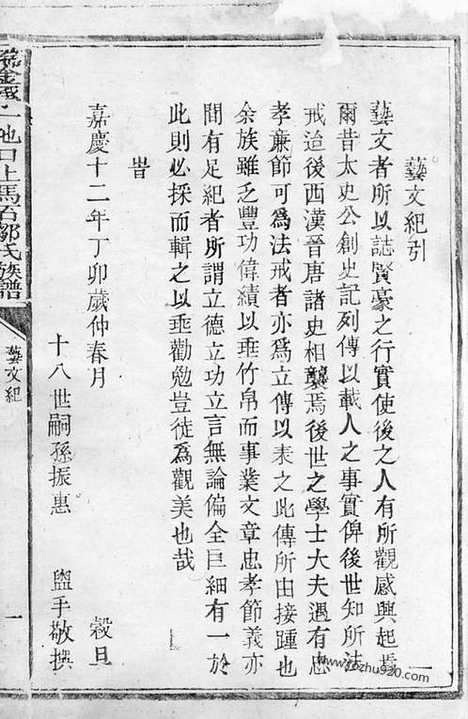 藝文紀引
藝文者所以誌賢豪之行實使後之人有所觀感興起焉
爾昔太史公創史記列傳以載人之事實俾後世知所法
戒迨後西漢晉唐諸史相襲焉後世之學士大夫遇有忠
孝廉節可為法戒者亦為立傳以表之此傳所由接踵也
余族雖乏豐功偉績以垂竹帛而事業文章忠孝節義亦
間有足紀者所謂立德立功立言無論偏全巨細有一於
此則必採而輯之以垂勸勉豈徒為觀美也哉
旹
嘉慶十二年丁卯歲仲春月 穀旦
十八世嗣孫振惠 盥手敬撰
池口上馬石鄒氏族譜
藝文紀
一
www.zozhu920.com